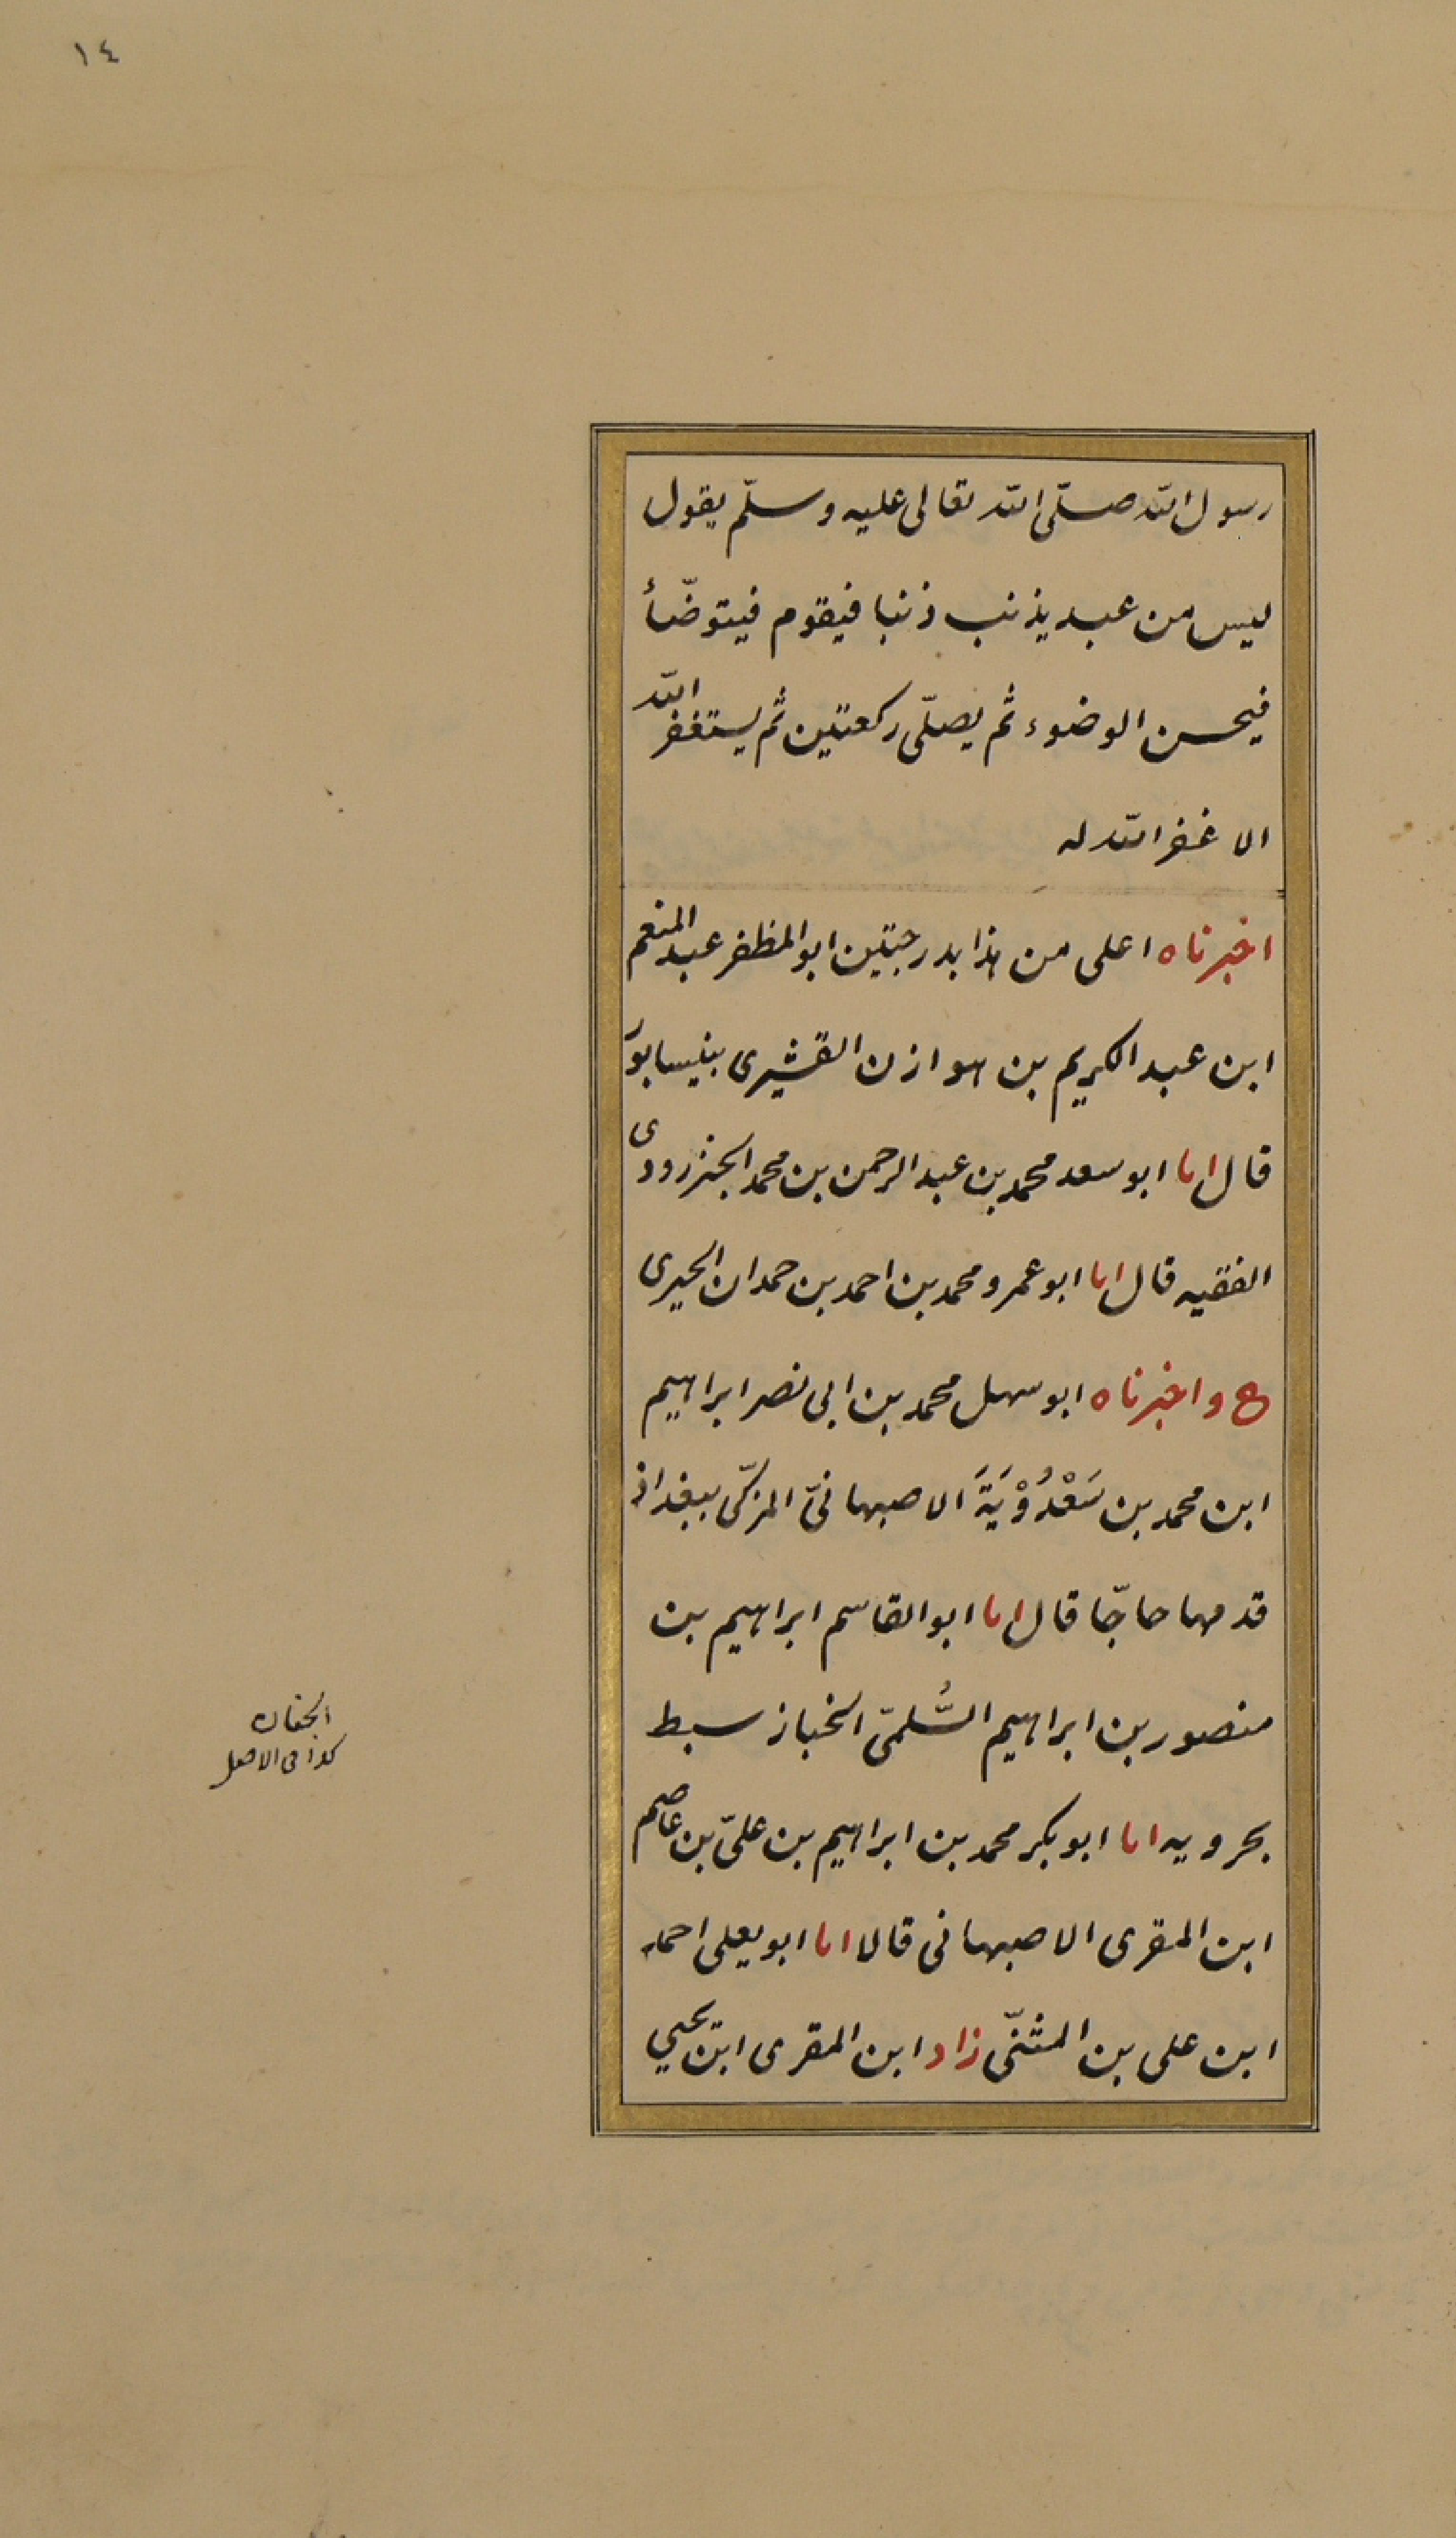 ١٤
رسول الله صلّى الله تعالى عليه وسلّم يقول
ليس من عبد يذنب ذنبا فيقوم فيتوضّأ
فيحسن الوضوء ثم يصلّى ركعتين ثم يستغفر الله
الا غفر الله له
اخبرناه اعلى من هذا بدرجتين ابو المظفر عبد المنعم
ابن عبد الكريم بن هوازن القشيرى بنيسابور
قال انا ابو سعد محمد بن عبد الرحمن بن محمد الجنزرودى
الفقيه قال انا ابو عمرو محمد بن احمد بن حمدان الحيرى
ح واخبرناه ابو سهل محمد بن ابى نصر ابراهيم
ابن محمد بن سَعْدُوْيَةَ الاصبهانىّ المزكّى ببغداذ
قدمها حاجّا قال انا ابو القاسم ابراهيم بن
منصور بن ابراهيم السُّلمىّ الخباز سبط
بحرويه انا ابو بكر محمد بن ابراهيم بن علىّ بن عاصم
ابن المقرى الاصبهانى قالا انا ابو يعلى احمد
ابن على بن المثنّى زاد ابن المقرى ابن يحيي
كذا فى الاصل